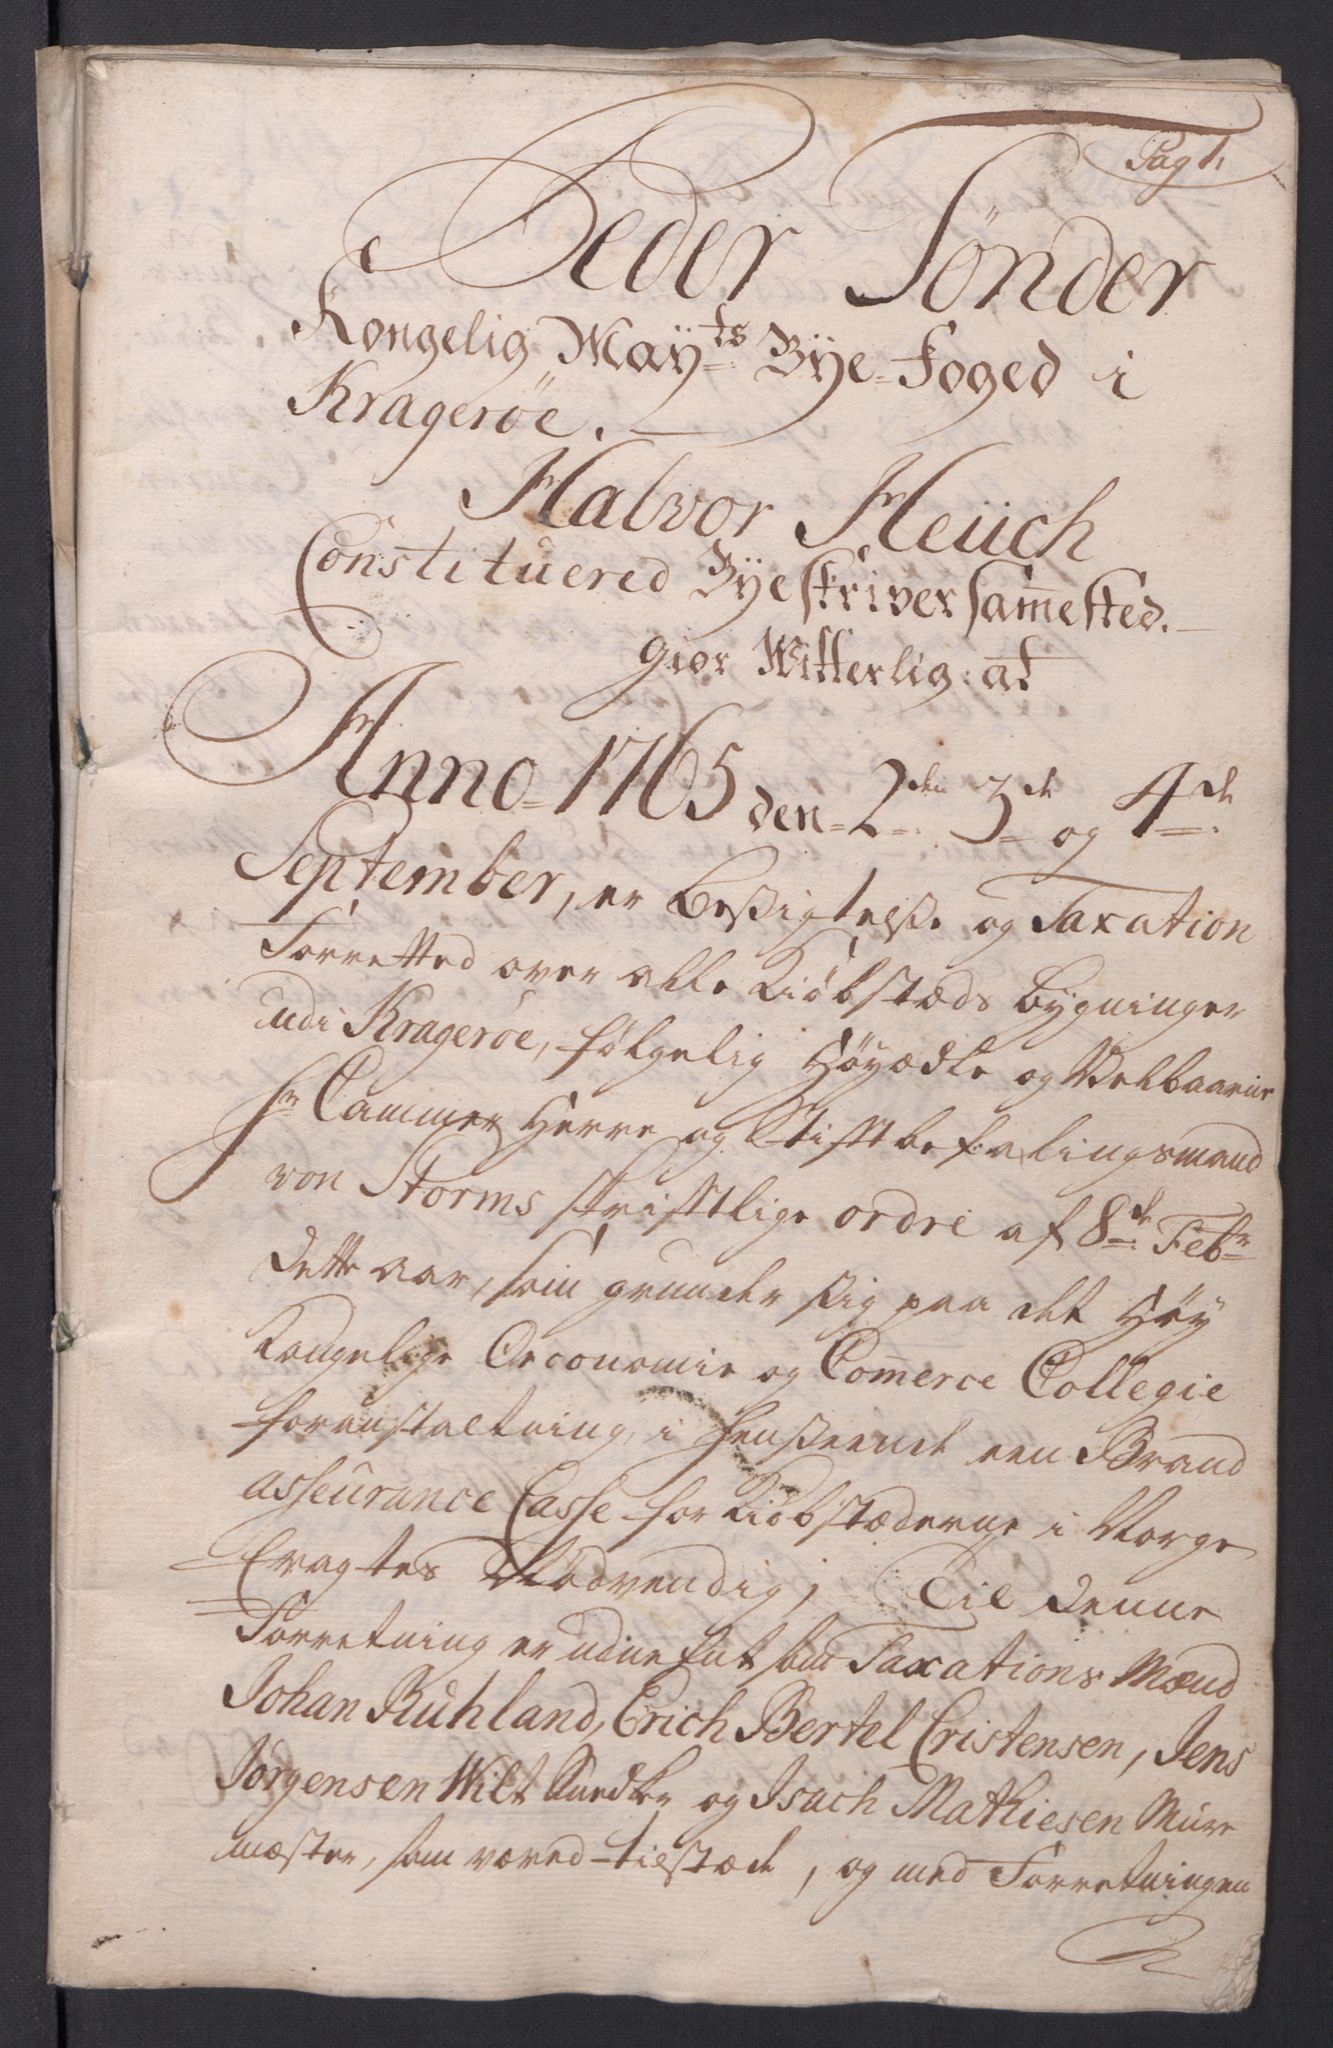 Pag 1.
Peder Tönder
Kongelig Maÿ:ts Bÿe-Foged i
Krageröe.
Halvor Heüch
Constitüered Bÿeskriver sam̄ested.
giör Witterlig: at
Anno-1765 den-2den 3de og 4de
September, er besigtelse og Taxation
Forretted over alle Kiöbstæds bygninger
udi Krageröe, fölgelig Höyædle og Velbaarne
Hr Cammer Herre og Stiftbefalingsmand
von Storms skriftlige ordre af 8de Febr
dette aar, som grunder sig paa det Höy
Kongelige Oeconomie og Com̄erce Collegie
foranstaltning, i henseende een Brand
asseurance Casse for Kiöbstæderne i Norge
Eragtes Nödvendig; Til denne
Forretning er udnefnt som Taxations Mænd
Johan Rühland, Erich Bertel Cristensen, Jens
Jörgensen Wilt Snedker og Isach Mathiesen Mure
mæster, som væred tilstæde, og med Forretningen